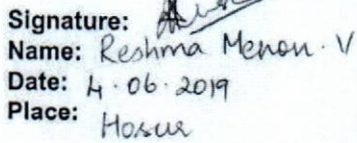 Signature:
Name: Reshma Menon. V
Date: 4.06.2019
Place: Hosur